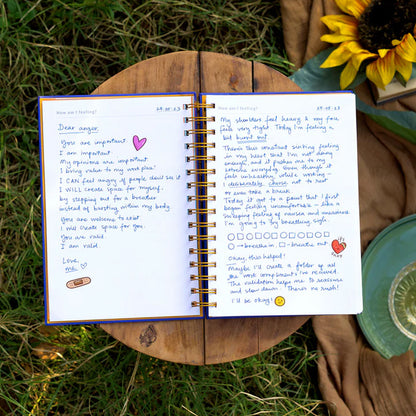 How am I feeling?
29.05.23
Dear anger,
You are important
I am important
My opinions are important.
I bring value to my workplace.
I CAN feel angry if people don't see it
I WILL create space for myself.
by stepping out for a breather
instead of bursting within my body.
You are welcome to exist
I will create space for you.
You are valid.
I am valid.
Love,
me.
How am I feeling?
29.05.23
My shoulders feel heavy & my face
feels very tight. Today I'm feeling a
bit burnt out.
There's this constant sinking feeling
in my heart that I'm not doing
enough, and it pushes me to my
extreme everyday. Even though it
feels unhealthy while working -
I deliberately chose not to rest
or even take a break
Today it got to a point that I first
began feeling uncomfortable - like a
sweeping feeling of nausea and uneasiness
I'm going to try breathing 4x4
→ breathe in, - breathe out
Okay, this helped!
Maybe I'll create a folder up all
the work compliments I've received.
The validation helps me to reassure
and slow down. There's no rush!
I'll be okay!